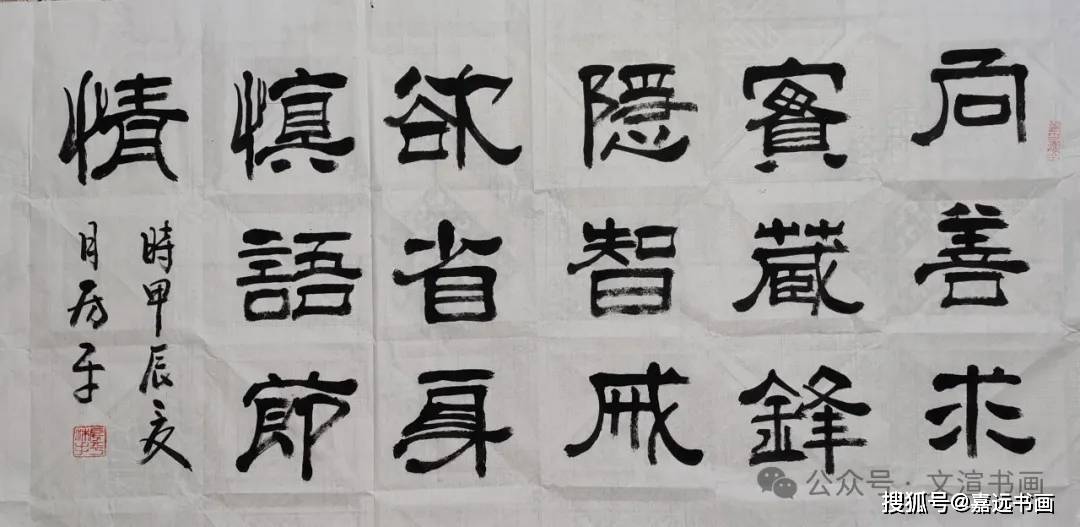 向善求
實藏鋒
隱智戒
欲省身
慎語節
情
時甲辰
月
公众号·文渲书画
搜狐号@嘉远书画